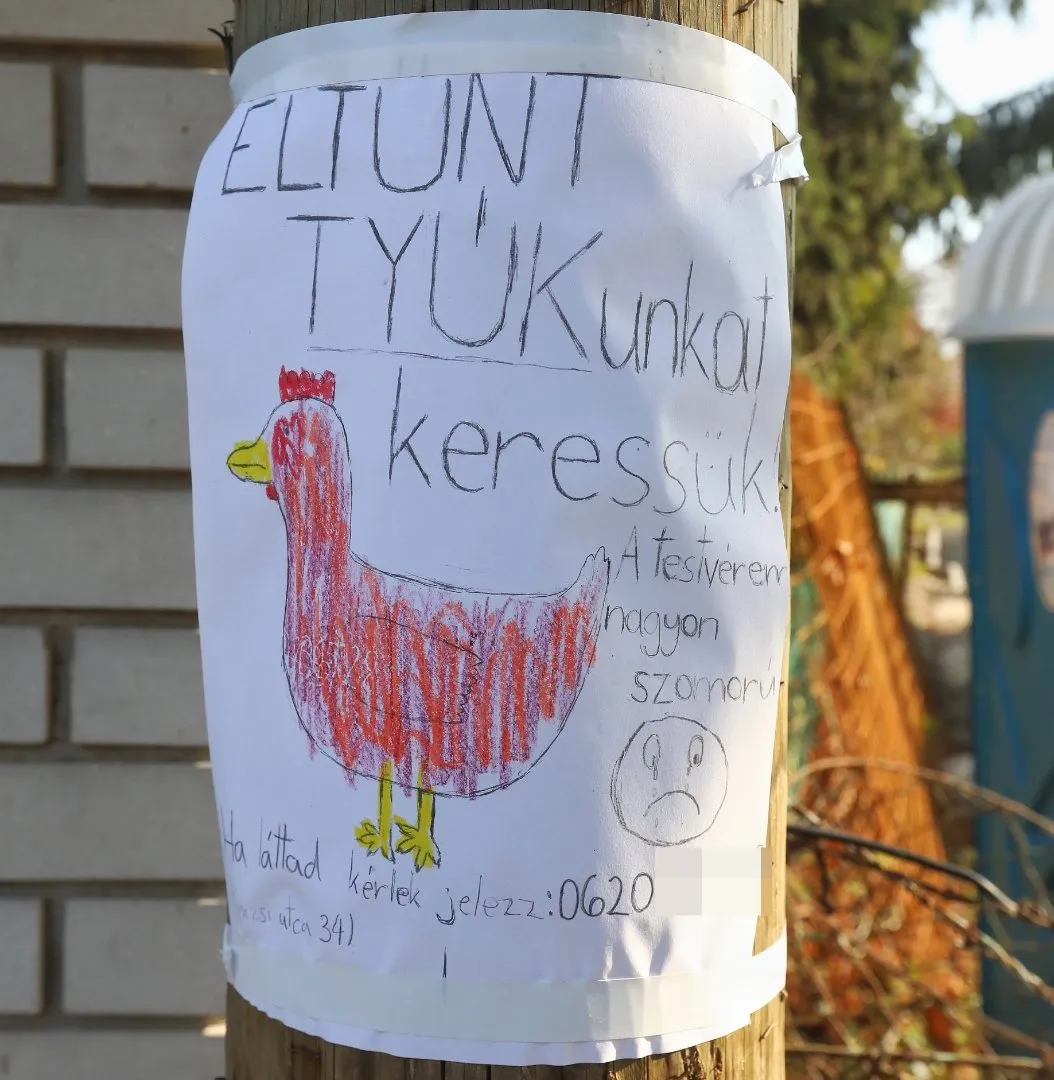 ELTŰNT
TYÚKunkat
keressük!
A testvérem
nagyon
szomorú
Ha láttad kérlek jelezz:0620
utca 34)